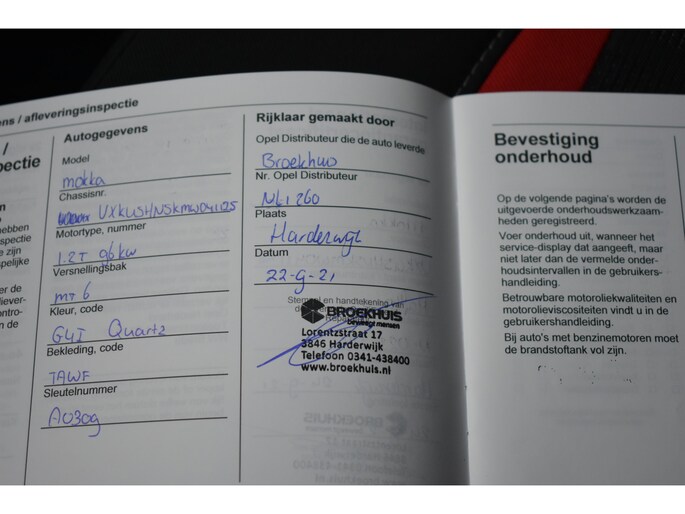 ens / afleveringsinspectie
/
pectie
en
hebben
spectie
e zijn
pelijke
er de
liever-
ontro-
n de
Autogegevens
Model
mokka
Chassisnr.
VXKUSHNSKMW041125
Motortype, nummer
1.2T 96kw
Versnellingsbak
MT 6
Kleur, code
G4I Quartz
Bekleding, code
TAWF
Sleutelnummer
A030g
Rijklaar gemaakt door
Opel Distributeur die de auto leverde
Broekhuis
Nr. Opel Distributeur
NL1260
Plaats
Harderwijk
Datum
22-9-21
Stempel en handtekening van
BROEKHUIS
beweegt mensen
Lorentzstraat 17
3846 Harderwijk
Telefoon 0341-438400
www.broekhuis.nl
Bevestiging
onderhoud
Op de volgende pagina's worden de
uitgevoerde onderhoudswerkzaam-
heden geregistreerd.
Voer onderhoud uit, wanneer het
service-display dat aangeeft, maar
niet later dan de vermelde onder-
houdsintervallen in de gebruikers-
handleiding.
Betrouwbare motoroliekwaliteiten en
motorolieviscositeiten vindt u in de
gebruikershandleiding.
Bij auto's met benzinemotoren moet
de brandstoftank vol zijn.